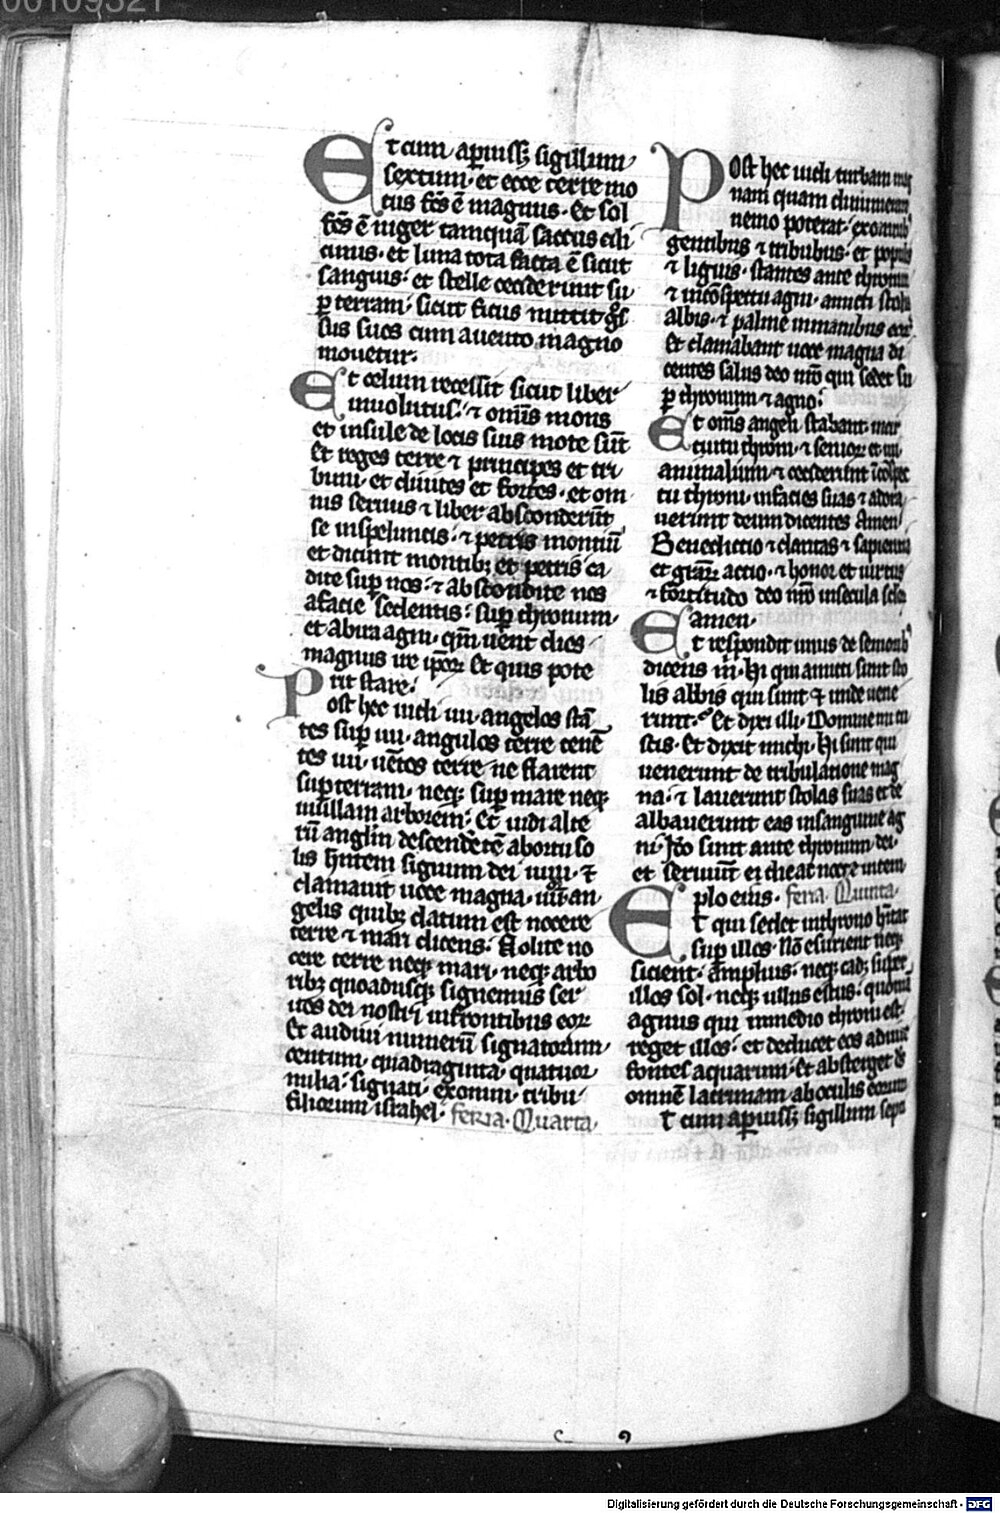 Et cum apuiss; sigillum
sextum · et ecce terre mo
tus fc̄s ē magnus · Et sol
fc̄s ē niger tamquā saccus cili
cinus · et luna tota facta ē sicut
sanguis · et stelle ceciderunt su
p terram · sicut ficus mittit gs̄
sus suos cum a uento magno
mouetur ·
Et celum recessit sicut liber
inuolutus · ⁊ omīs mons
et insule de locis suis mote sūt
Et reges terre ⁊ principes et tri
buni · et diuites et fortes · et om
nis seruus ⁊ liber absconderūt
se in speluncis · ⁊ petris montiū
et dicunt montibꝫ et petris ca
dite sup nos · ⁊ abscondite nos
a facie sedentis · sup thronum ·
et ab ira agni · qm̄ uenit dies
magnus ire ip̄oꝝ Et quis pote
rit stare ·
Post hec uidi iiii · angelos stā
tes sup iiii · angulos terre tenē
tes iiii · uētos terre ne flarent
sup terram · neqꝫ sup mare neqꝫ
in ullam arborem · Et uidi alte
rū anglm̄ descendētē ab ortu so
lis hn̄tem signum dei uiui · ⁊
clamauit uoce magna · iiii · an
gelis quibꝫ datum est nocere
terre ⁊ mari dicens · Nolite no
cere terre neqꝫ mari · neqꝫ arbo
ribꝫ quoadusqꝫ signemus ser
uos dei nostri in frontibus eoꝝ
Et audiui numerū signatorum ·
centum · quadraginta · quatuor ·
milia · signati · ex omni · tribu ·
filiorum israhel · feria · Quarta ·
Post hec uidi turbam mag
nam quam dinumerare
nemo poterat · ex omnibꝰ
gentibus ⁊ tribubus · et populis
⁊ liguis · stantes ante thronum
⁊ in cōspectu agni · amicti stolis
albis · ⁊ palme in manibus eoꝝ
Et clamabant uoce magna di
centes salus deo nr̄o qui sedet su
p thronum ⁊ agno ·
Et om̄s angeli stabant in cir
cuitu throni · ⁊ senioꝝ et iiii ·
animalium · ⁊ ceciderunt ī cōspec
tu throni · in facies suas ⁊ adora
uerunt deum dicentes Amen ·
Benedictio ⁊ claritas ⁊ sapientia
et gr̄aꝝ actio · ⁊ honor et uirtus
⁊ fortitudo deo nr̄o in secula sclo
amen ·
Et respondit unus de senioribꝰ
dicens m̄ · Hi qui amicti sunt sto
lis albis qui sunt ⁊ unde uene
runt · Et dixi illi · Domine mi tu
scis · Et dixit michi · Hi sunt qui
uenerunt de tribulatione mag
na · ⁊ lauerunt stolas suas et de
albauerunt eas in sanguine ag
ni · Ido sunt ante thronum dei ·
et seruiūt ei die ac nocte in tem
plo eius · feria · Quinta ·
Et qui sedet in throno hītat
sup illos · Nō esurient neqꝫ
sicient · amplius · neqꝫ cadꝫ super
illos sol · neqꝫ ullus estus · quoniā
agnus qui in medio throni est ·
reget illos · et deducet eos ad uite
fontes aquarum · Et absterget ds̄
omnē lacrimam ab oculis eorum
t cum apuiss; sigillum septi
Digitalisierung gefördert durch die Deutsche Forschungsgemeinschaft - DFG